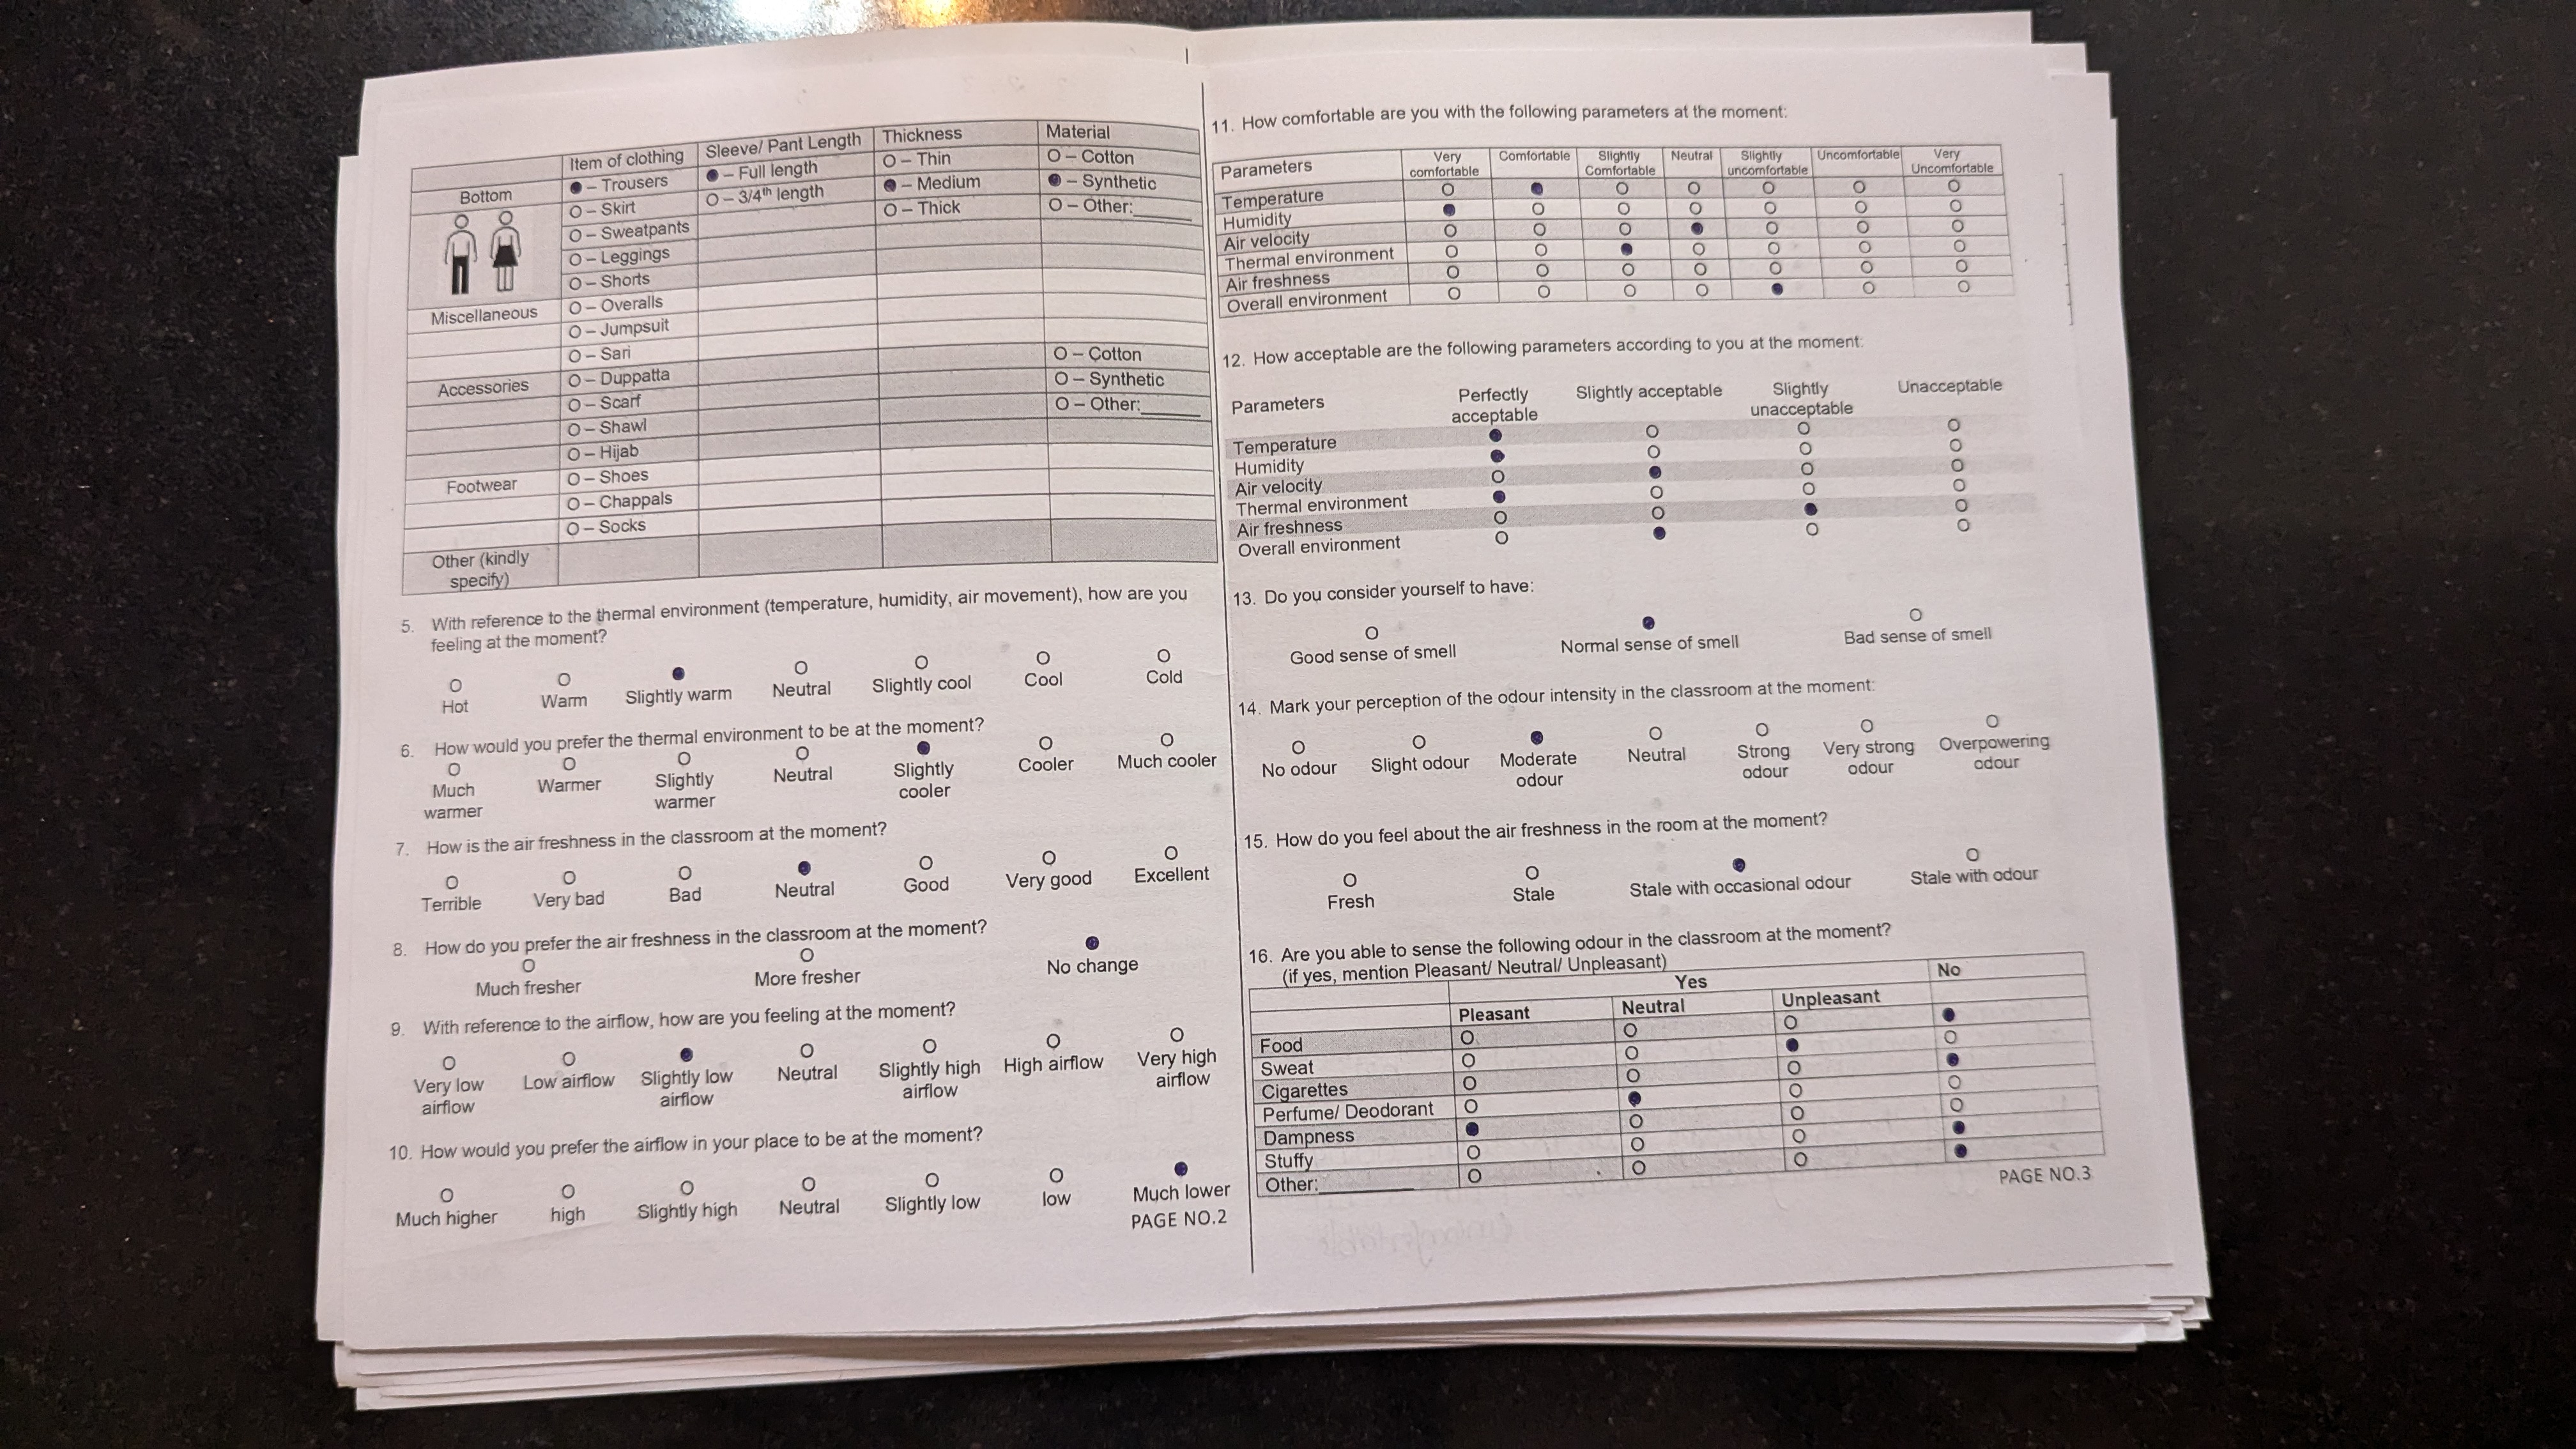 Item of clothing Sleeve/ Pant Length Thickness Material
Bottom ● – Trousers ● – Full length O – Thin O – Cotton
O – Skirt O – 3/4th length ● – Medium ● – Synthetic
O – Sweatpants O – Thick O – Other:______
O – Leggings
O – Shorts
Miscellaneous O – Overalls
O – Jumpsuit
O – Sari
Accessories O – Duppatta O – Cotton
O – Scarf O – Synthetic
O – Shawl O – Other:______
O – Hijab
Footwear O – Shoes
O – Chappals
O – Socks
Other (kindly
specify)
5. With reference to the thermal environment (temperature, humidity, air movement), how are you
feeling at the moment?
O O ● O O O O
Hot Warm Slightly warm Neutral Slightly cool Cool Cold
6. How would you prefer the thermal environment to be at the moment?
O O O O ● O O
Much Warmer Slightly Neutral Slightly Cooler Much cooler
warmer warmer cooler
7. How is the air freshness in the classroom at the moment?
O O O ● O O O
Terrible Very bad Bad Neutral Good Very good Excellent
8. How do you prefer the air freshness in the classroom at the moment?
O O ●
Much fresher More fresher No change
9. With reference to the airflow, how are you feeling at the moment?
O O ● O O O O
Very low Low airflow Slightly low Neutral Slightly high High airflow Very high
airflow airflow airflow airflow
10. How would you prefer the airflow in your place to be at the moment?
O O O O O O ●
Much higher high Slightly high Neutral Slightly low low Much lower
PAGE NO.2
11. How comfortable are you with the following parameters at the moment:
Parameters Very Comfortable Slightly Neutral Slightly Uncomfortable Very
comfortable Comfortable uncomfortable Uncomfortable
Temperature O ● O O O O O
Humidity ● O O O O O O
Air velocity O O O ● O O O
Thermal environment O O ● O O O O
Air freshness O O O O O O O
Overall environment O O O O ● O O
12. How acceptable are the following parameters according to you at the moment:
Parameters Perfectly Slightly acceptable Slightly Unacceptable
acceptable unacceptable
Temperature ● O O O
Humidity ● O O O
Air velocity O ● O O
Thermal environment ● O O O
Air freshness O O ● O
Overall environment O ● O O
13. Do you consider yourself to have:
O ● O
Good sense of smell Normal sense of smell Bad sense of smell
14. Mark your perception of the odour intensity in the classroom at the moment:
O O ● O O O O
No odour Slight odour Moderate Neutral Strong Very strong Overpowering
odour odour odour odour
15. How do you feel about the air freshness in the room at the moment?
O O ● O
Fresh Stale Stale with occasional odour Stale with odour
16. Are you able to sense the following odour in the classroom at the moment?
(if yes, mention Pleasant/ Neutral/ Unpleasant)
Yes No
Pleasant Neutral Unpleasant
Food O O O ●
Sweat O O ● O
Cigarettes O O O ●
Perfume/ Deodorant O ● O O
Dampness ● O O O
Stuffy O O O ●
Other:__________ O O O ●
PAGE NO.3